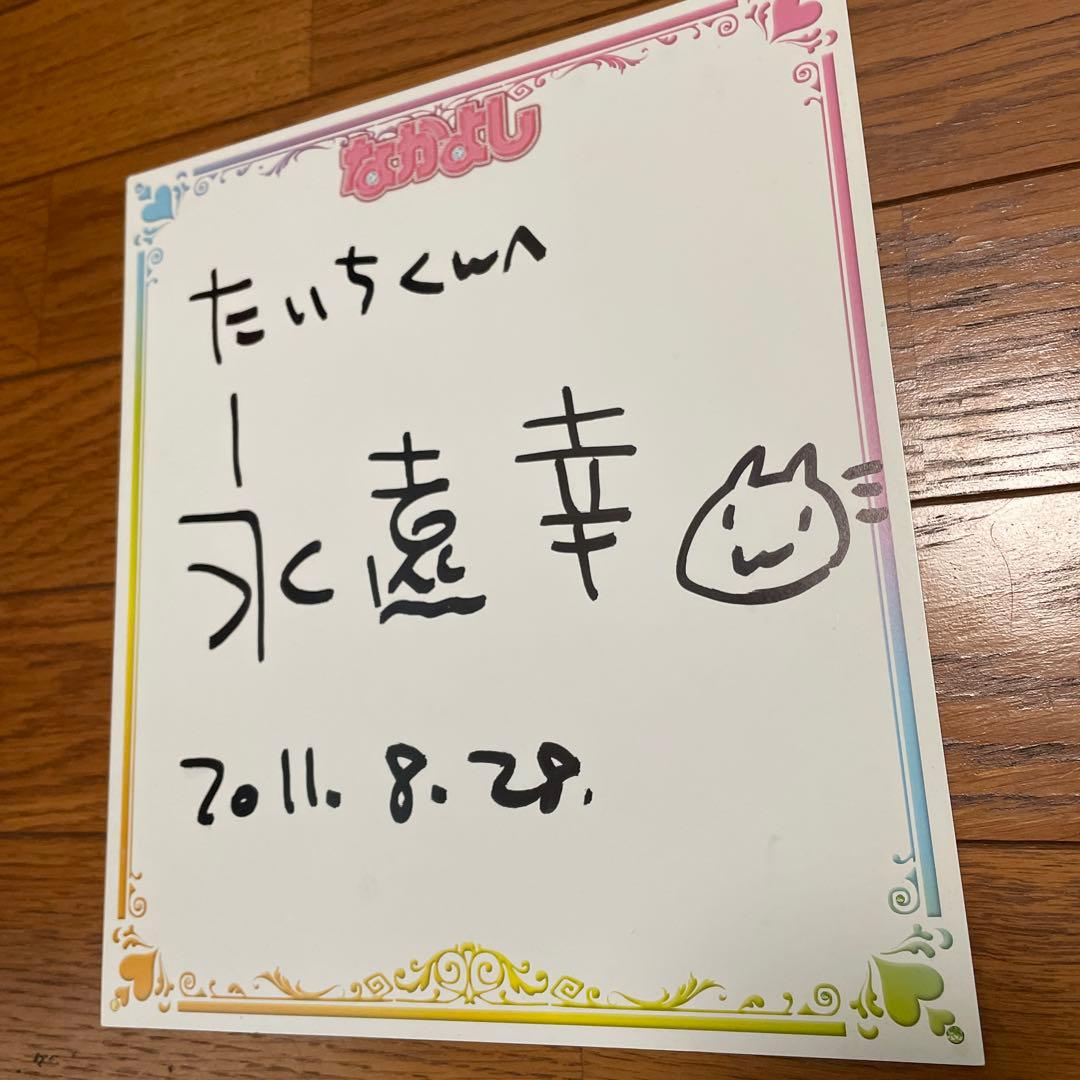 なかよし
たいちくんへ
永遠幸
2011.8.28.